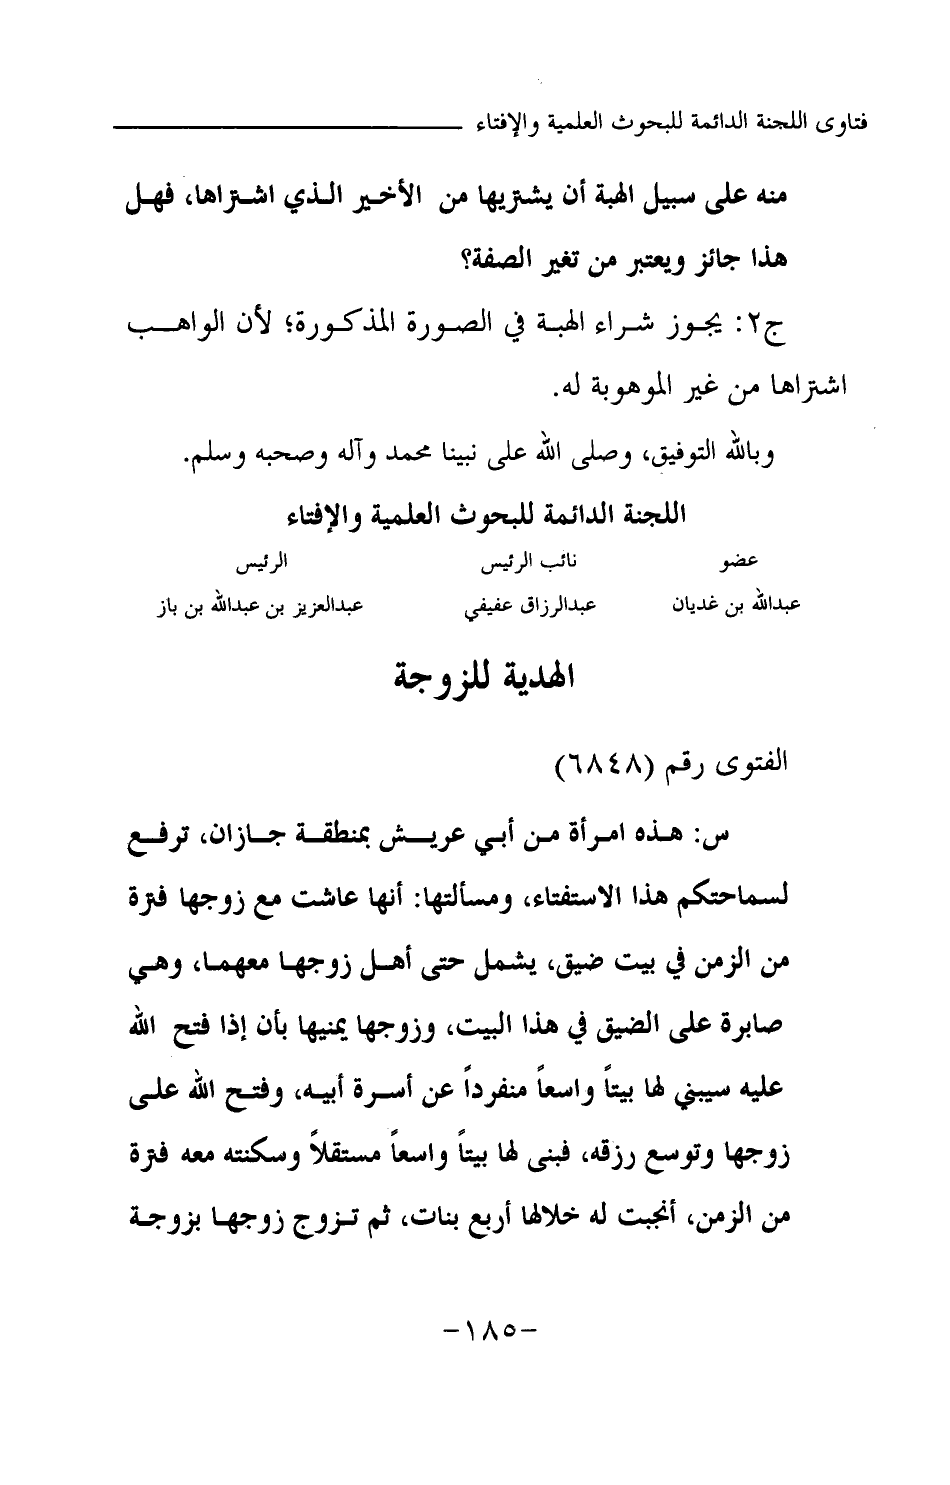 فتاوى اللجنة الدائمة للبحوث العلمية والإفتاء
منه على سبيل الهبة أن يشتريها من الأخير الذي اشتراها، فهل
هذا جائز ويعتبر من تغير الصفة؟
ج٢: يجوز شراء الهبة في الصورة المذكورة؛ لأن الواهب
اشتراها من غير الموهوبة له.
وبالله التوفيق، وصلى الله على نبينا محمد وآله وصحبه وسلم.
اللجنة الدائمة للبحوث العلمية والإفتاء
عضو نائب الرئيس الرئيس
عبدالله بن غديان عبدالرزاق عفيفي عبدالعزيز بن عبدالله بن باز
الهدية للزوجة
الفتوى رقم (٦٨٤٨)
س: هذه امرأة من أبي عريش بمنطقة جازان، ترفع
لسماحتكم هذا الاستفتاء، ومسألتها: أنها عاشت مع زوجها فترة
من الزمن في بيت ضيق، يشمل حتى أهل زوجها معهما، وهي
صابرة على الضيق في هذا البيت، وزوجها يمنيها بأن إذا فتح الله
عليه سيبني لها بيتاً واسعاً منفرداً عن أسرة أبيه، وفتح الله على
زوجها وتوسع رزقه، فبنى لها بيتاً واسعاً مستقلاً وسكنته معه فترة
من الزمن، أنجبت له خلالها أربع بنات، ثم تزوج زوجها بزوجة
-١٨٥-